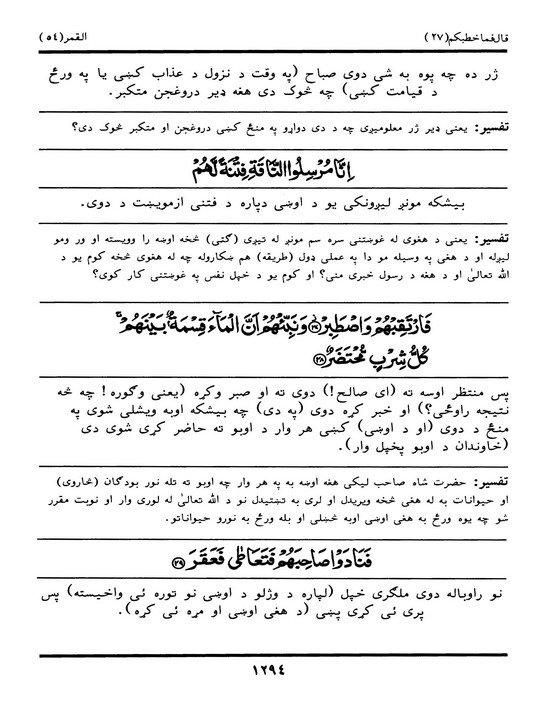 قال فماخطبكم(٢٧) القمر(٥٤)
ژر ده چه پوه به شی دوی صباح (په وقت د نزول د عذاب کښی یا په ورځ
د قیامت کښی) چه څوک دی هغه ډیر دروغجن متکبر.
تفسیر: یعنی ډیر ژر معلومیږی چه د دی دواړو په منځ کښی دروغجن او متکبر څوک دی؟
اِنَّا مُرْسِلُوا النَّاقَةِ فِتْنَةً لَّهُمْ
بیشکه مونږ لیږونکی یو د اوښی دپاره د فتنی ازمویښت د دوی.
تفسیر: یعنی د هغوی له غوښتنی سره سم مونږ له تیږی (ګټی) څخه اوښه را وویسته او ور ومو
لیږله او د هغی په وسیله مو دا په عملی ډول (طریقه) هم ښکاروله چه له هغوی څخه کوم یو د
الله تعالیٰ او د هغه د رسول خبری منی؟ او کوم یو د خپل نفس په غوښتنی کار کوی؟
فَارْتَقِبْهُمْ وَاصْطَبِرْ ﴿٢٧﴾ وَنَبِّئْهُمْ اَنَّ الْمَآءَ قِسْمَةٌۢ بَيْنَهُمْ ۚ
كُلُّ شِرْبٍ مُّحْتَضَرٌ ﴿٢٨﴾
پس منتظر اوسه ته (ای صالح!) دوی ته او صبر وکړه (یعنی وګوره! چه څه
نتیجه راوځی؟) او خبر کړه دوی (په دی) چه بیشکه اوبه ویشلی شوی په
منځ د دوی (او د اوښی) کښی هر وار د اوبو ته حاضر کړی شوی دی
(خاوندان د اوبو پخپل وار).
تفسیر: حضرت شاه صاحب لیکی هغه اوښه به په هر وار چه اوبو ته تله نور بودګان (څاروی)
او حیوانات به له هغی څخه ویریدل او لری به تښتیدل نو د الله تعالیٰ له لوری وار او نوبت مقرر
شو چه یوه ورځ به هغی اوښی اوبه څښلی او بله ورځ به نورو حیواناتو.
فَنَادَوْا صَاحِبَهُمْ فَتَعَاطٰى فَعَقَرَ ﴿٢٩﴾
نو راوباله دوی ملګری خپل (لپاره د وژلو د اوښی نو توره ئی واخیسته) پس
پری ئی کړی پښی (د هغی اوښی او مړه ئی کړه).
١٢٩٤